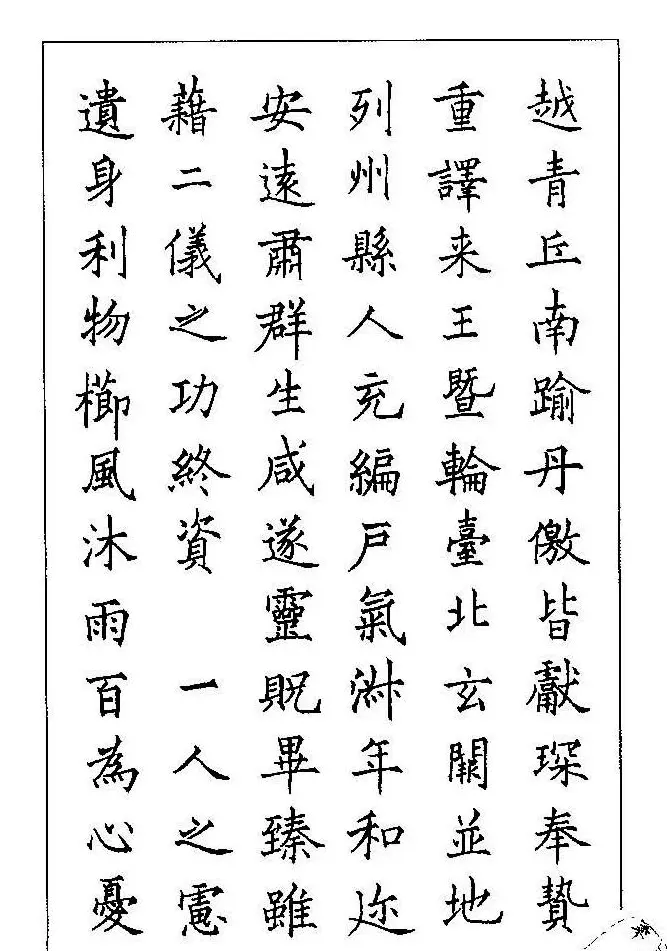 越青丘南踰丹儌皆獻琛奉贄
重譯来王暨輪臺北玄闕並地
列州縣人充編戸氣淋年和迩
安逺肅群生咸遂靈貺畢臻雖
藉二儀之功終資一人之慮
遺身利物櫛風沐雨百為心憂